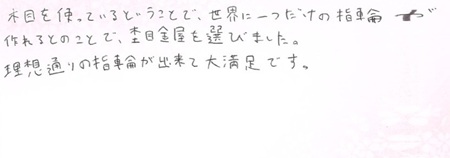 木目を使っているということで、世界に一つだけの指輪が
作れるとのことで、杢目金屋を選びました。
理想通りの指輪が出来て大満足です。